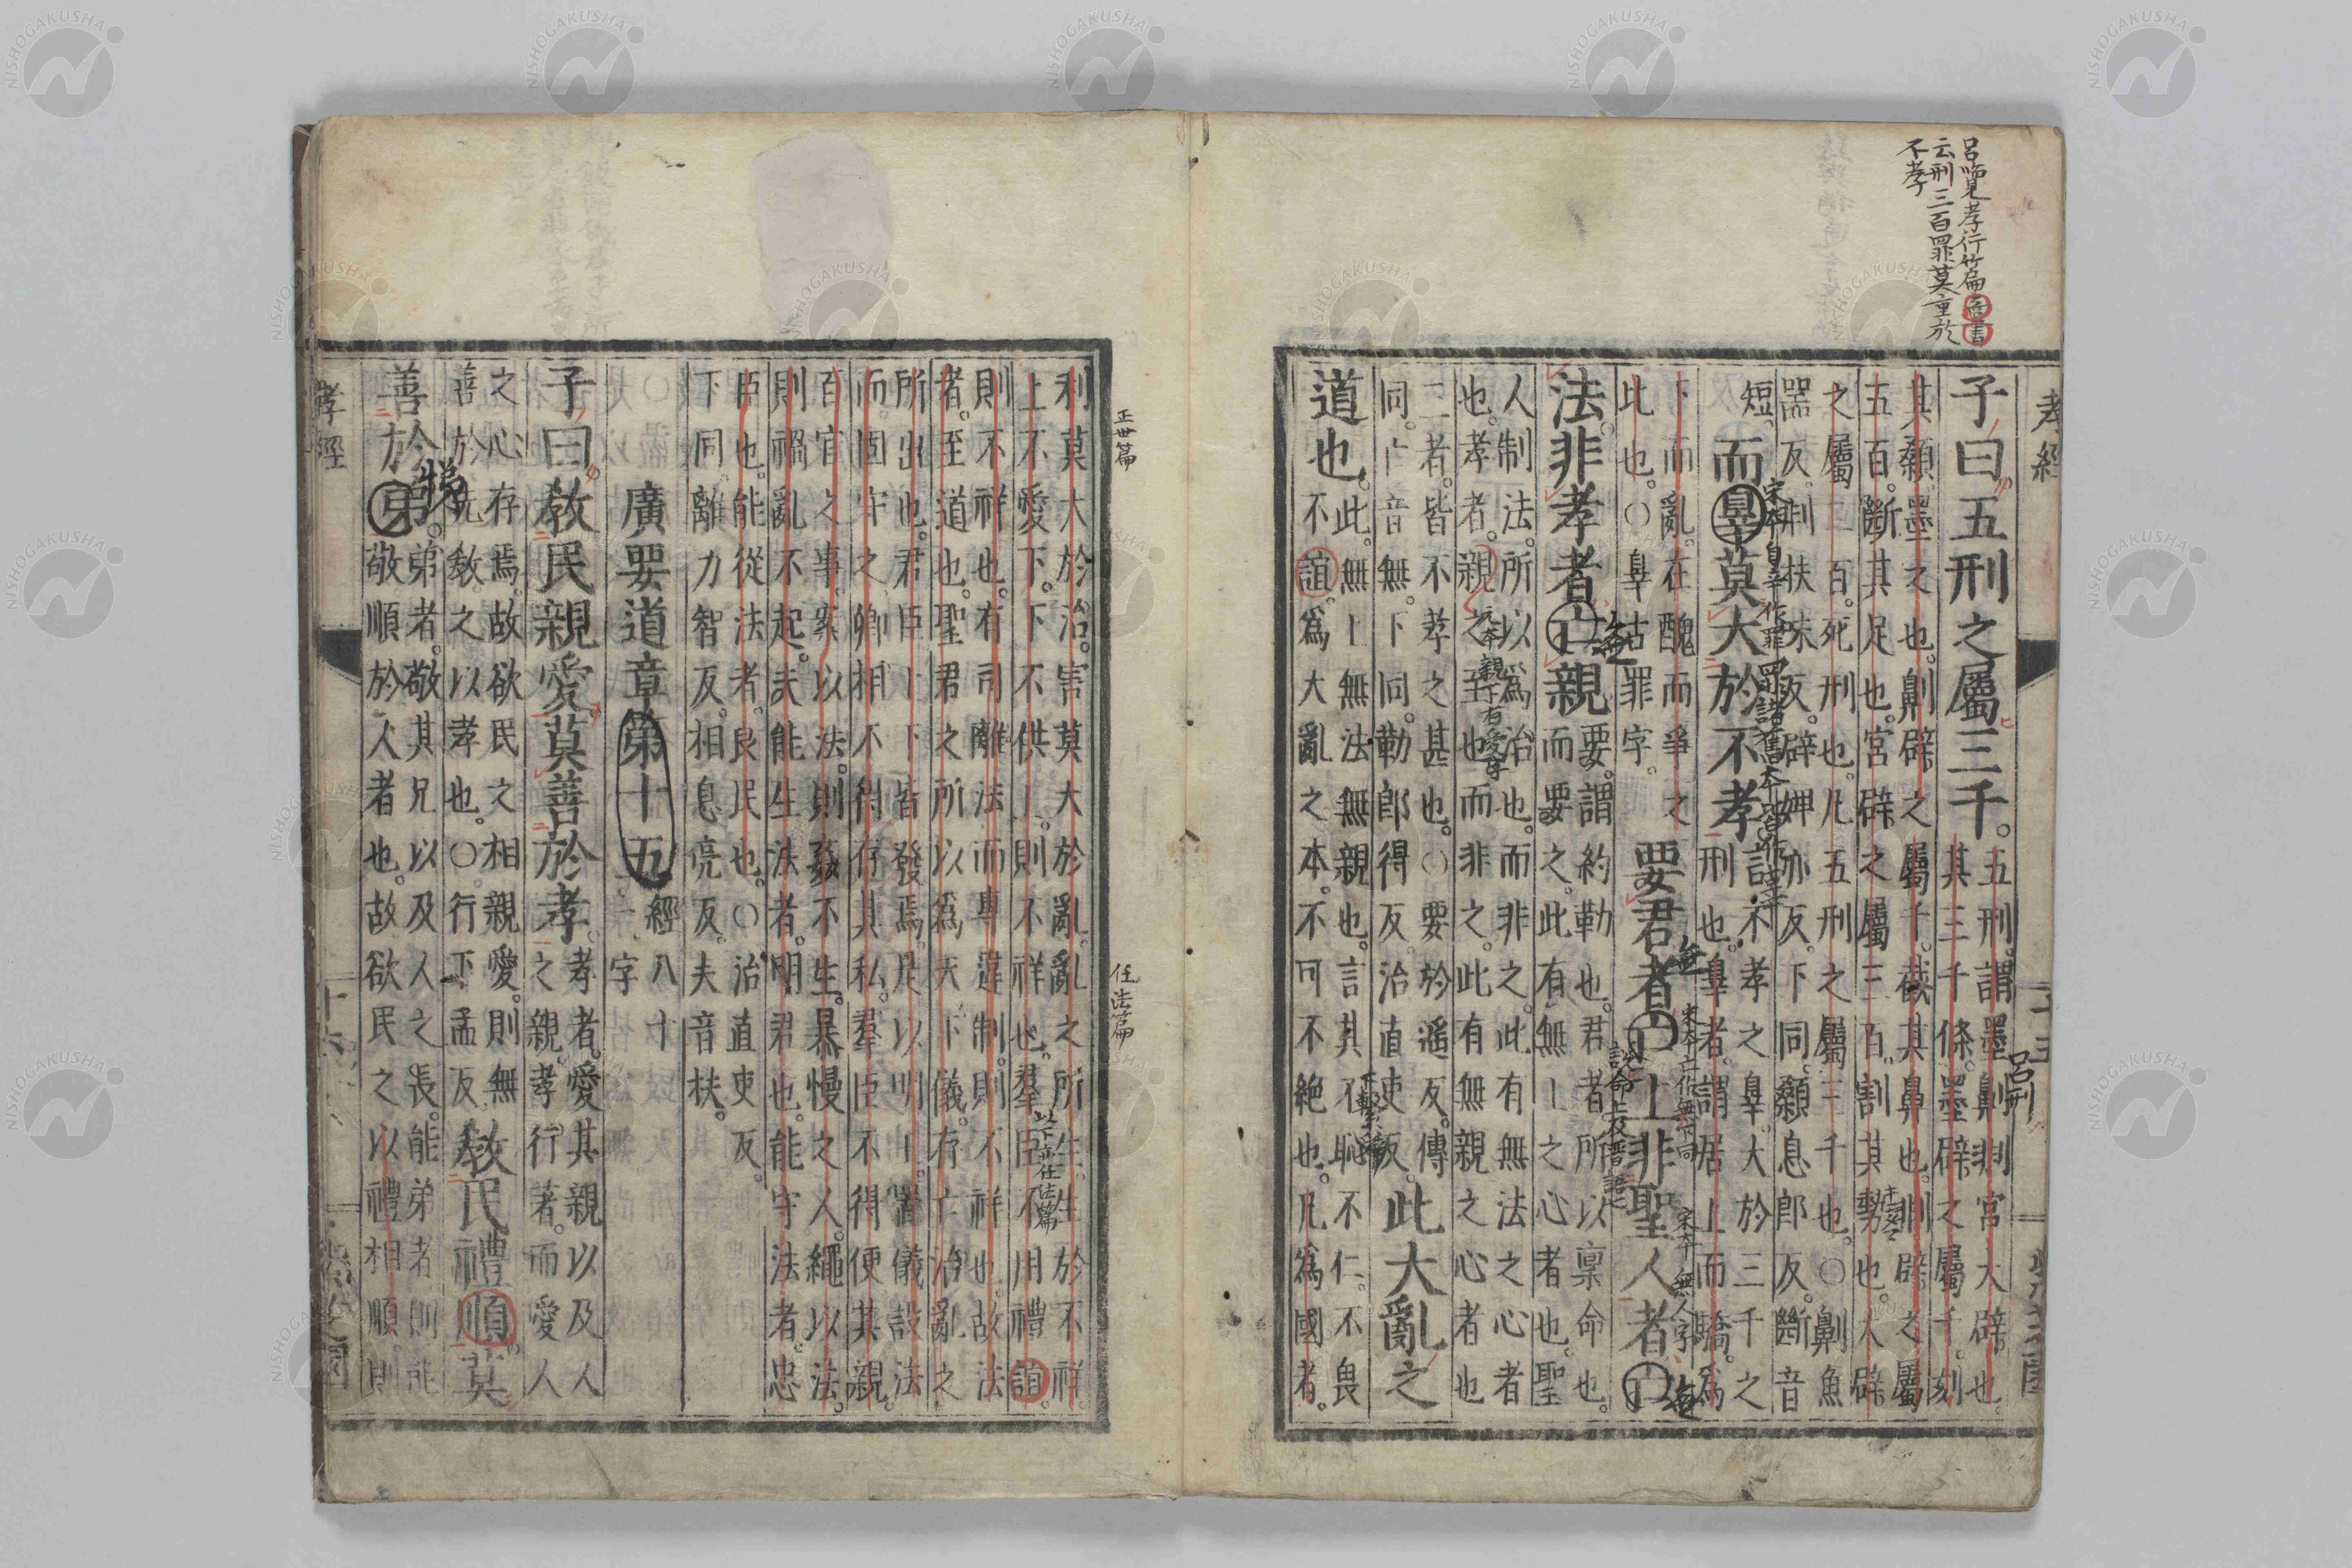 呂覽孝行篇商書
云刑三百罪莫重於
不孝
孝經
子曰五刑之屬三千。五刑。謂墨劓剕宮大辟也。
其三千條。墨辟之屬千。刻
其顙墨之也。劓辟之屬千。截其鼻也。剕辟之屬
五百。斷其足也。宮辟之屬三百。割其勢也。大辟
之屬二百。死刑也。凡五刑之屬三千也。○劓魚
器反。剕扶味反。辟婢亦反。下同。顙息郎反。斷音
短。而辠莫大於不孝不孝之辠。大於三千之
刑也。辠者。謂居上而驕。爲
下而亂。在醜而爭之
此也。○辠古罪字。要君者亡上非聖人者亡
法。非孝者亡親要。謂約勒也。君者所以稟命也。
而要之。此有無上之心者也。聖
人制法。所以爲治也。而非之。此有無法之心者
也。孝者。親之至也。而非之。此有無親之心者也
三者。皆不孝之甚也。○要於遙反。傳
同。亡音無。下同。勒郎得反。治直吏反。此大亂之
道也。此。無上無法無親也。言其不恥不仁。不畏
不誼。爲大亂之本。不可不絕也。凡爲國者。
呂刑
宋本辠作罪
宋本亡作無下同
宋本無人字
正世篇
任法篇
利莫大於治。害莫大於亂。亂之所生。生於不祥。
上不愛下。下不供上。則不祥也。羣臣不用禮誼。
則不祥也。有司離法而專違制。則不祥也。故法
者。至道也。聖君之所以爲天下儀。存亡治亂之
所出也。君臣上下皆發焉。是以明上。置儀設法
而。固守之。卿相不得存其私。羣臣不得便其親。
百官之事。案以法。則姦不生。暴慢之人。繩以法。
則禍亂不起。夫能生法者。明君也。能守法者。忠
臣也。能從法者。良民也。○治直吏反。
下同。離力智反。相息亮反。夫音扶。
廣要道章第十五經八十
一字
子曰教民親愛莫善於孝。孝者。愛其親以及人
之親。孝行著。而愛人
之心存焉。故欲民之相親愛。則無
善於先教之以孝也。○行下孟反教民禮順。莫
善於弟。弟者。敬其兄以及人之長。能弟者則能
敬順於人者也。故欲民之以禮相順。則
孝經